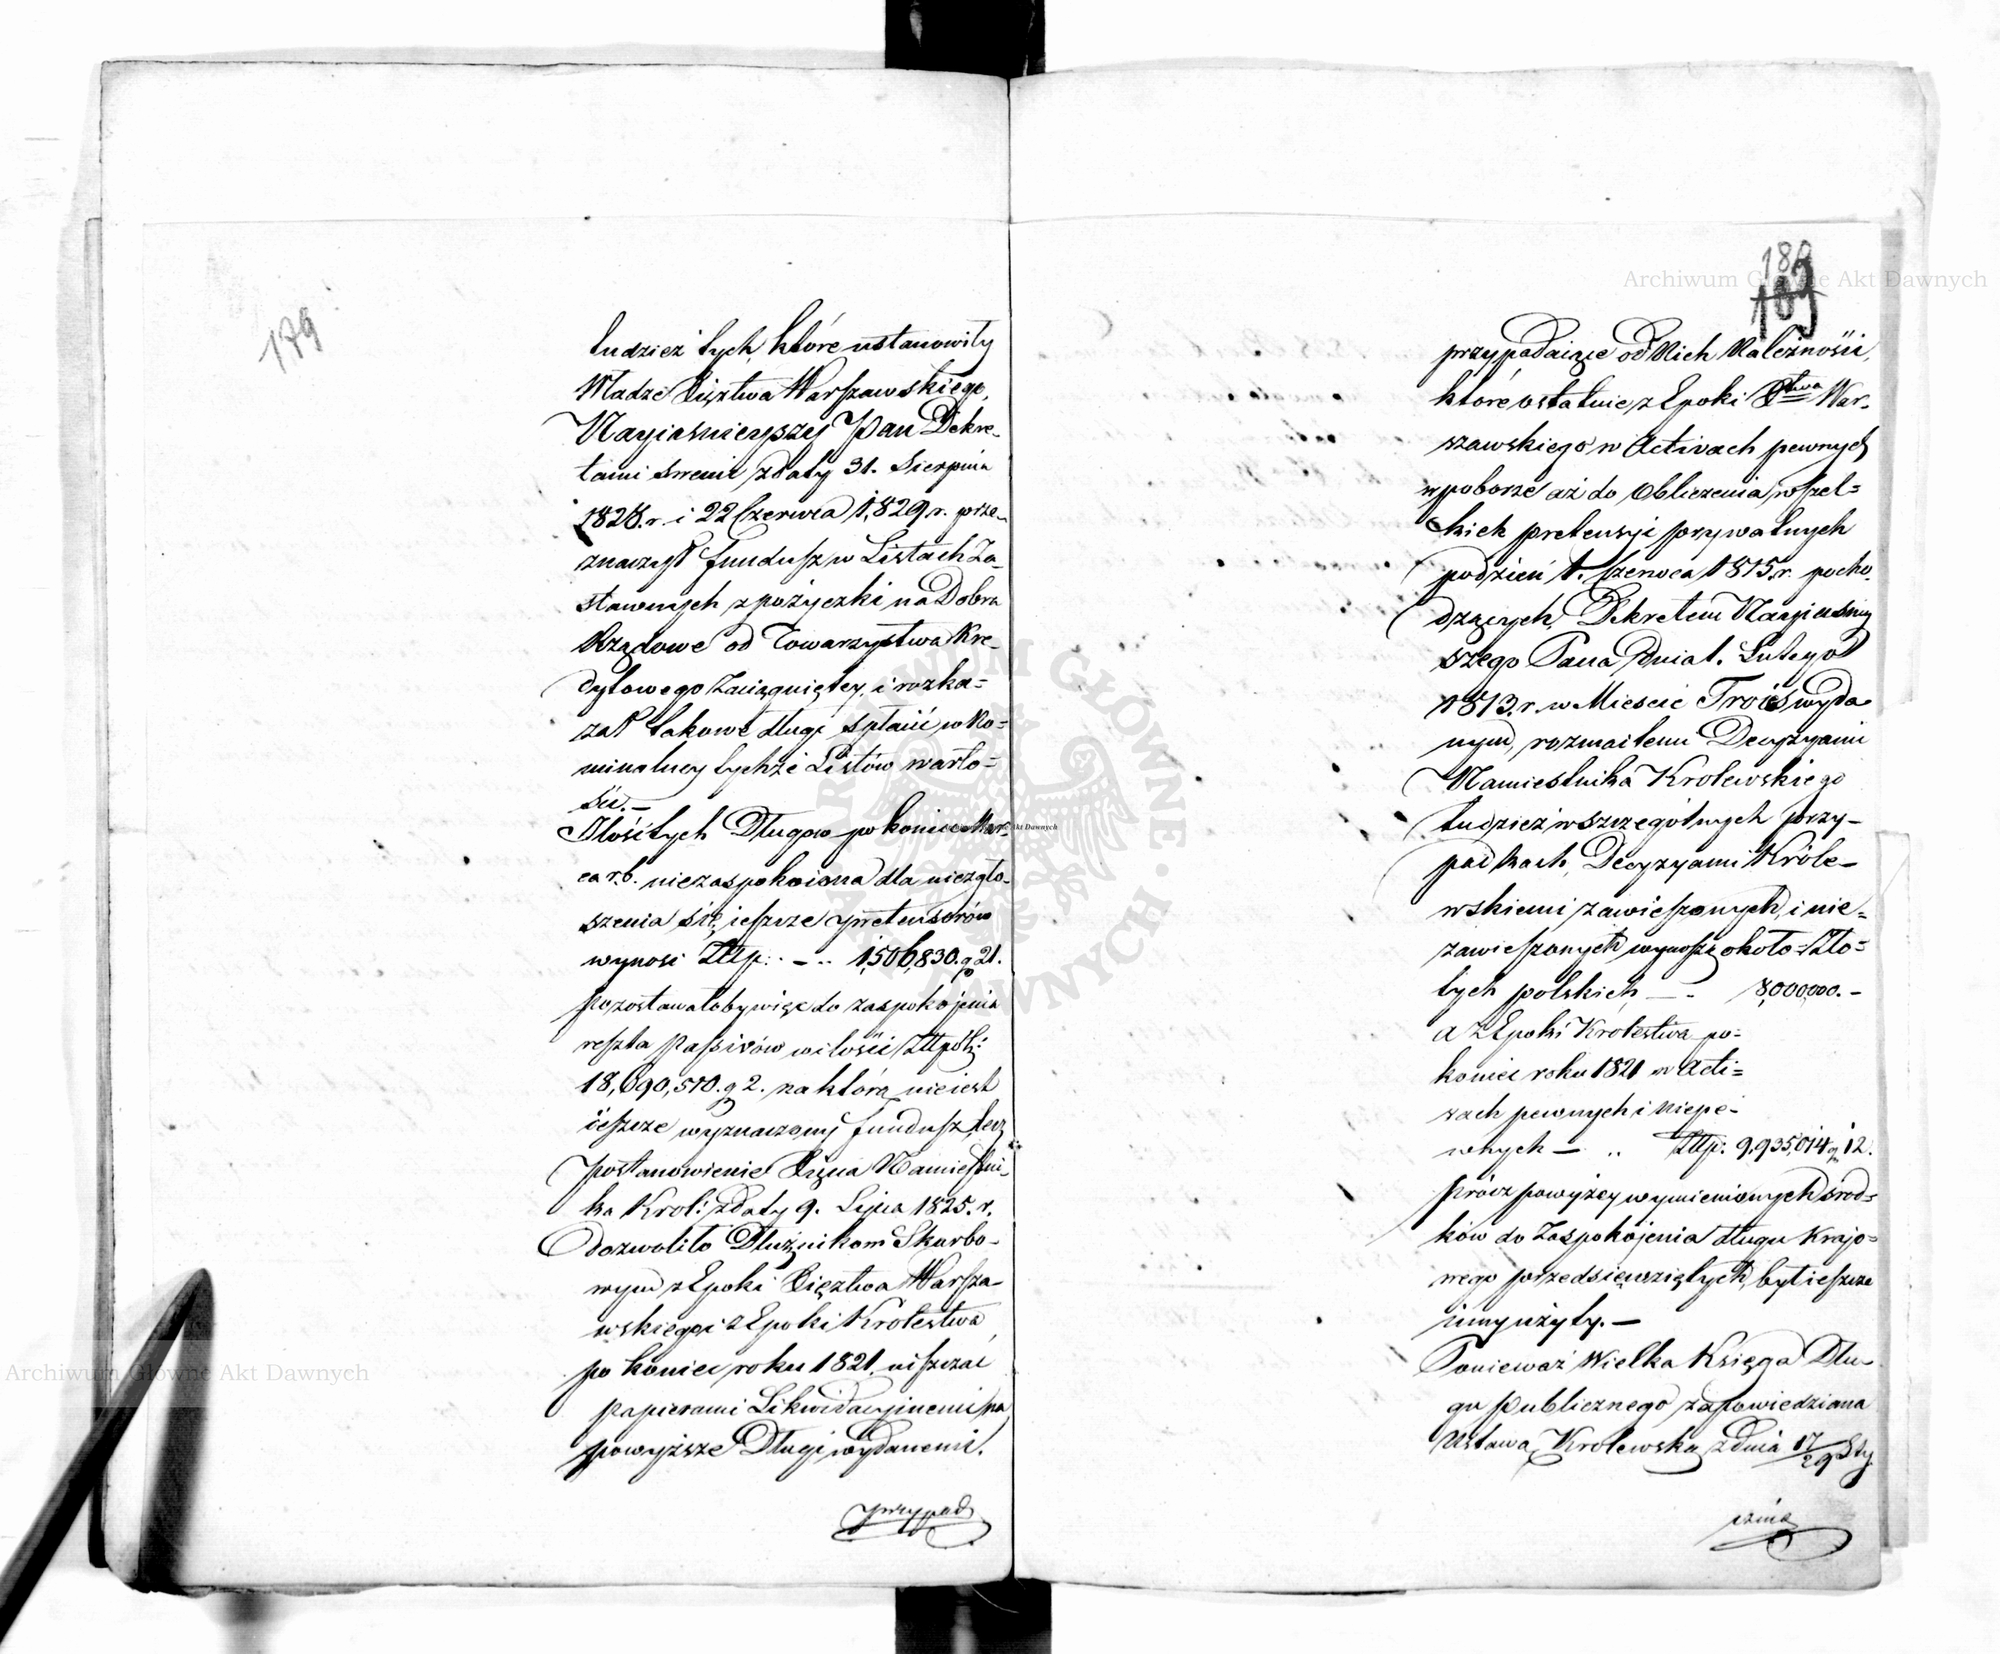 179
tudzież tych, które ustanowiły
Władze Xięztwa Warszawskiego,
Nayiaśnieyszy Pan Dekre-
tami swemi z daty 31. Sierpnia
1828.r. i 22 Czerwca 1,829 r. prze-
znaczył fundusz w Listach Za-
stawnych z pożyczki na Dobra
Rządowe od Towarzystwa Kre-
dytowego zaciągniętey, i rozka-
zał takowe długi spłacić w No-
minalney tychże Listów warto-
ści.-
Ilość tych Długów po koniec Mar-
ca r.b. niezaspokoiona dla niezgło-
szenia się, ieszcze pretensorów
wynosi Złłp: . - .. 1,506,830. g 21.
pozostawałoby więc do zaspokojenia
reszta Passivów w ilości Złłpol:
18,690,510. g 2. na którą nie iest
ieszcze wyznaczony fundusz, lecz
postanowienie Xięcia Namiestni-
ka Krol: z daty 9. Lipca 1825. r.
dozwoliło Dłużnikom Skarbo-
wym z Epoki Xięztwa Warsza-
wskiego i z Epoki Królestwa
po koniec roku 1821. uiszczać
papierami Likwidacyinemi na
powyższe Długi wydanemi.
przypad
180
189
przypadaiące od Nich Należności,
które ostatnie z Epoki Xtwa War-
szawskiego w Activach pewnych
w poborze aż do Obliczenia wszel-
kich pretensyi prywatnych
podzień 1. Czerwca 1815.r. pocho-
dzących, Dekretem Nayiaśniey
szego Pana z dnia 1. Lutego
1813.r. w Mieście Troies wyda-
nym, rozmaitemi Decyzyami
Namiestnika Królewskiego
tudzież w szczególnych przy-
padkach, Decyzyami Króle-
wskiemi zawieszonych, i nie-
zawieszonych wynoszą około Zło-
tych polskich — - 8,000,000. -
a z Epoki Królestwa po-
koniec roku 1821 w Acti-
vach pewnych i niepe-
wnych — .. Złłp: 9,935,014 g 12.
prócz powyżey wymienionych środ-
ków do Zaspokojenia długu Krajo-
wego przedsięwziętych, był ieszcze
inny użyty. —
Ponieważ Wielka Księga Dłu-
gu publicznego zapowiedziana
Ustawą Królewską z dnia 17/29 Sty
cznia
Archiwum Główne Akt Dawnych
Archiwum Główne Akt Dawnych
Archiwum Główne Akt Dawnych
ARCHIWUM GŁÓWNE AKT DAWNYCH